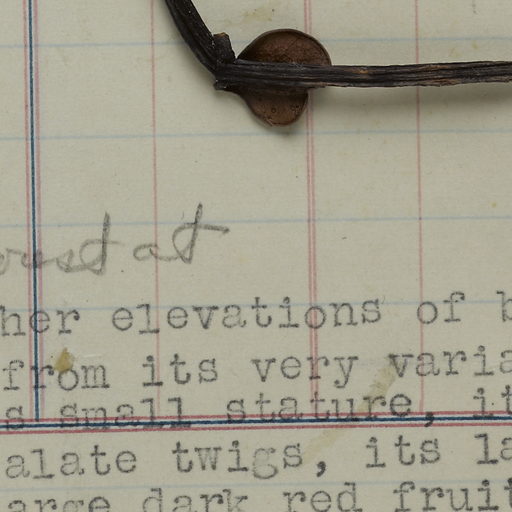 at
her elevations of b
from its very varia
s small stature, it
alate twigs, its la
arge dark red fruit